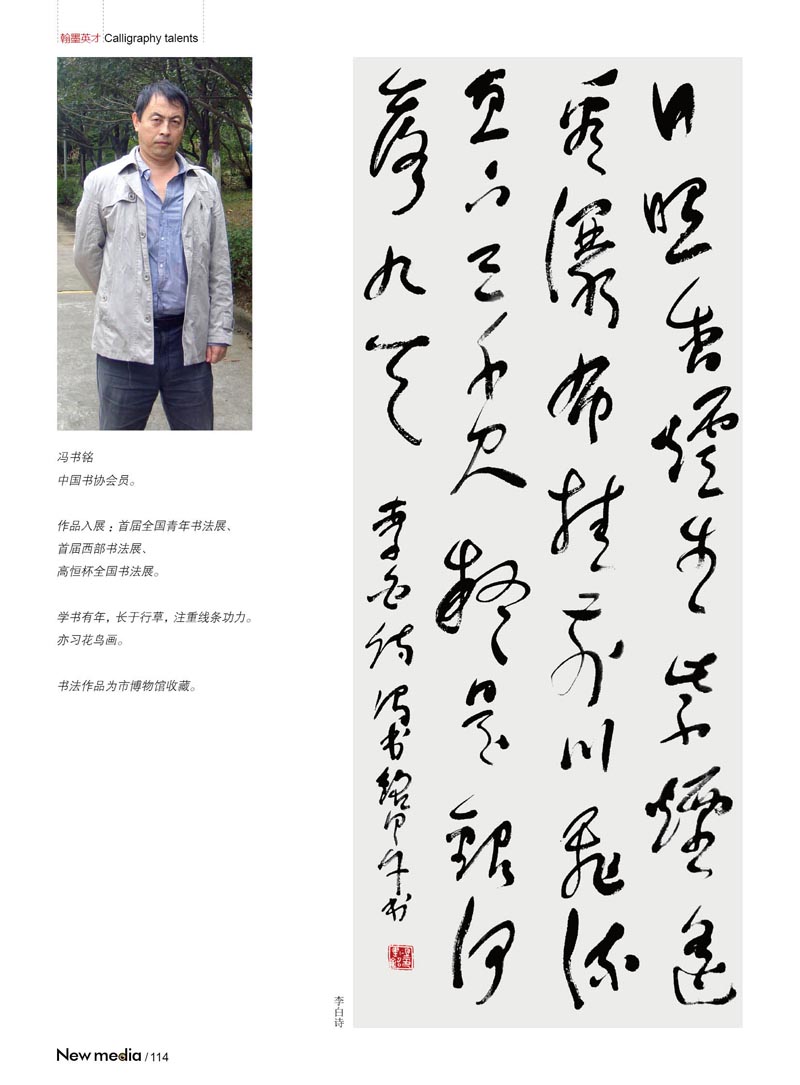 翰墨英才 Calligraphy talents
冯书铭
中国书协会员。
作品入展：首届全国青年书法展、
首届西部书法展、
高恒杯全国书法展。
学书有年，长于行草，注重线条功力。
亦习花鸟画。
书法作品为市博物馆收藏。
日照香爐生紫煙遙
看瀑布挂前川飛流
直下三千尺疑是銀河
落九天
李白诗冯书銘甲午书
李白诗
New media / 114